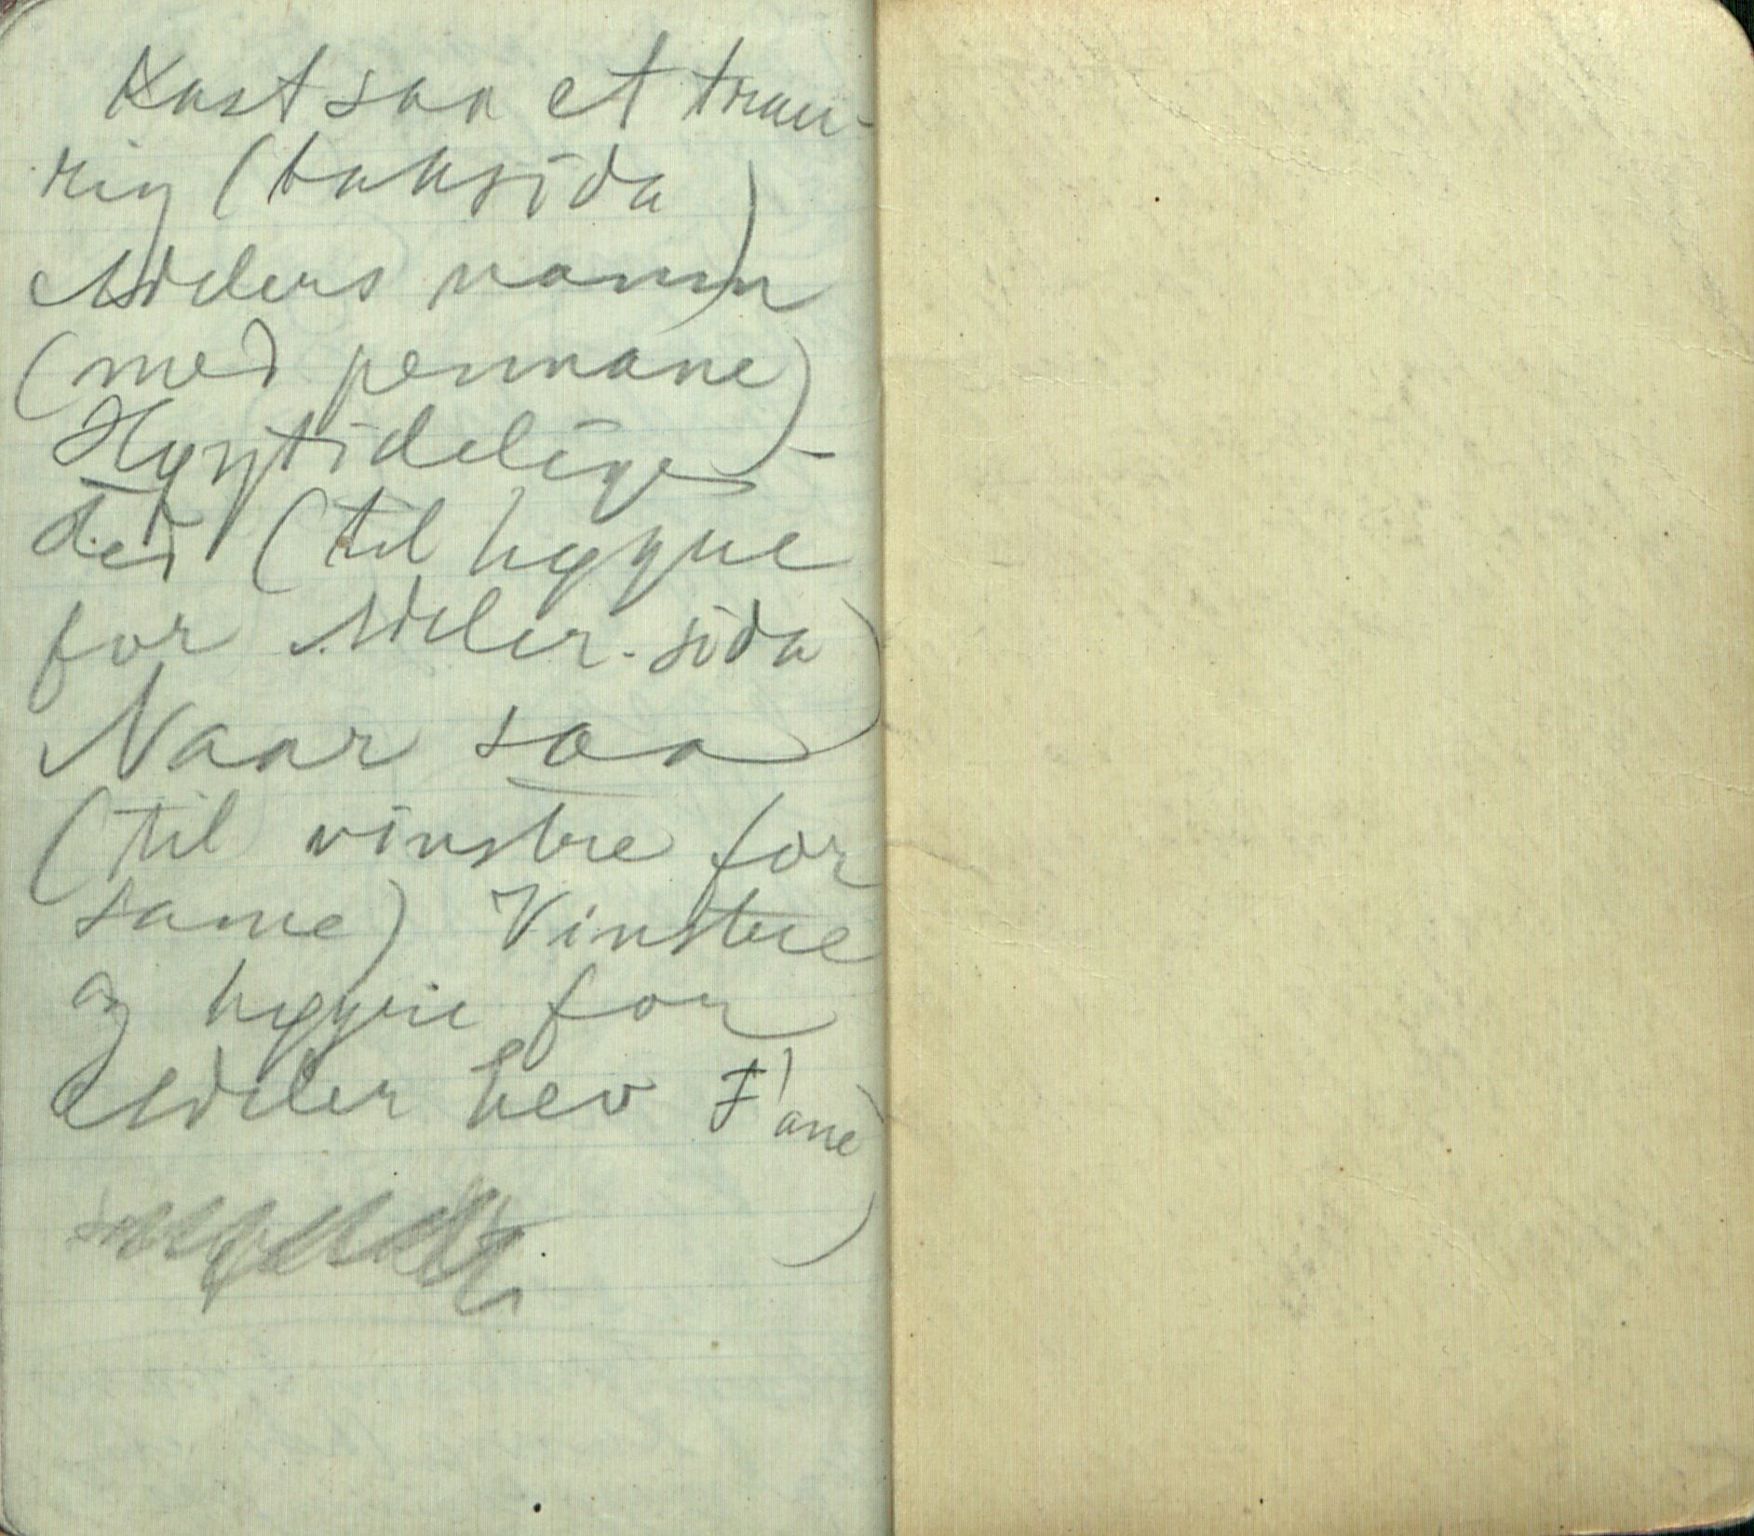 Kast saa et trau-
rig (baksida)
Adelers namn
(med pennane)
Høgtidelige -
ded (til høgre
for Adeler-sida)
Naar saa
(til vinstre for
same) Vinstre
og høgre for
Adeler hev F'ane)